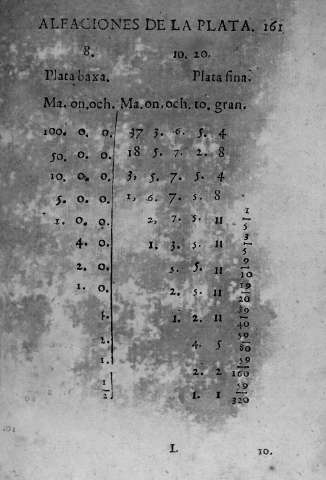 ALEACIONES DE LA PLATA. 161
8. 10. 20.
Plata baxa. Plata fina.
Ma. on. och. Ma. on. och. to. gran.
100. 0. 0. 37 3. 6. 5. 4
50. 0. 0. 18 5. 7. 2. 8
10. 0. 0. 3, 5. 7. 5. 4
5. 0. 0. 1, 6. 7. 5. 8
1. 0. 0. 2, 7. 5. 11 1/5
4. 0. 1. 3. 5. 11 3/5
2. 0. 5. 5. 11 9/10
1. 0. 2. 5. 11 19/20
4. 1. 2. 11 39/40
2. 4. 5 59/80
1. 2. 2 59/160
1/2. 1. 1 59/320
L 10.